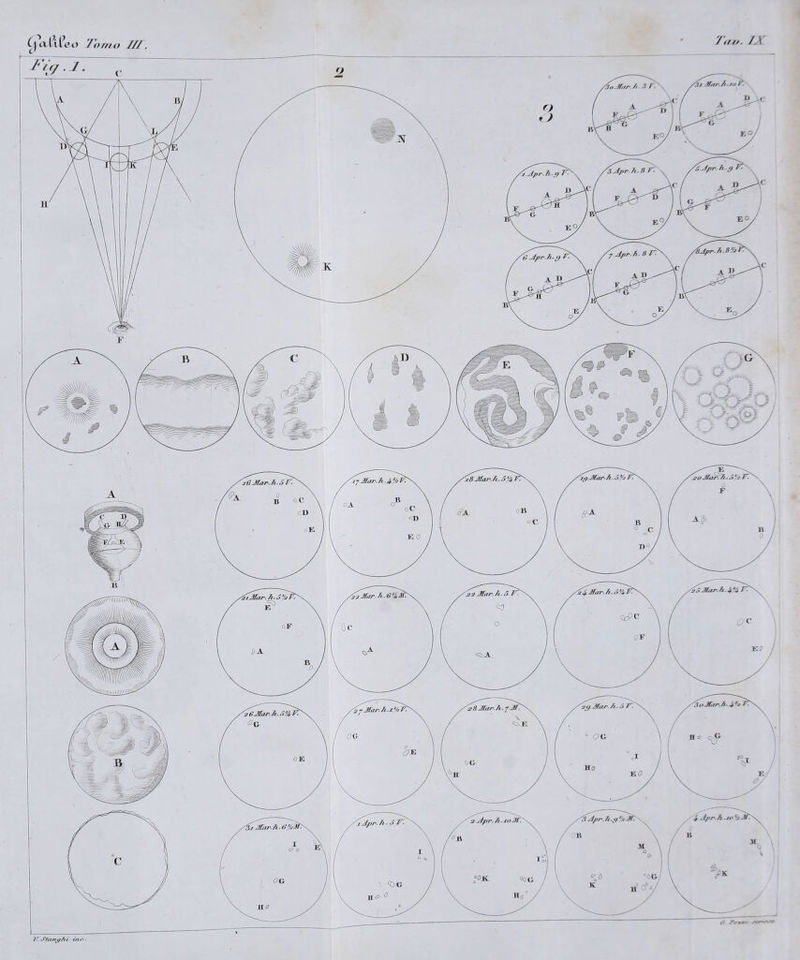 Galileo Tomo III.
Tav. IX
Fig. 1.
2
3
C
A B
G L
D I K E
H
F
N
K
30. Mar. h. 3 V.
A C
F D
B H G
E
31 Mar. h. 10 V.
A D C
F
B G
E
1 Apr. h. 9 V.
A D C
F H
B G
E
3 Apr. h. 8 V.
A C
F D
B
E
5 Apr. h. 9 V.
A D C
G F
B
E
6 Apr. h. 9 V.
A D C
F G H
B
E
7 Apr. h. 8 V.
A D C
F G
B
E
8 Apr. h. 8½ V.
A D C
B
E
A
B
C
D
E
F
G
A
C D
G H
F E
B
16 Mar. h. 5 V.
A B C
D
E
17 Mar. h. 4½ V.
A B
C
D
E
18 Mar. h. 5¼ V.
A B
C
19 Mar. h. 5½ V.
A
B C
D
E
20 Mar. h. 5½ V.
F
A
B
A
21 Mar. h. 5½ V.
E
F
A
B
22 Mar. h. 6¼ M.
C
A
22 Mar. h. 5 V.
A
24 Mar. h. 5¼ V.
C
F
25 Mar. h. 4¼ V.
C
E
B
26 Mar. h. 5¼ V.
G
E
27 Mar. h. 1½ V.
G
E
28 Mar. h. 7 M.
E
G
H
29 Mar. h. 5 V.
G
I
H E
30 Mar. h. 4½ V.
H G
I
E
C
31 Mar. h. 6½ M.
I E
G
H
1 Apr. h. 5 V.
I
G
H
2 Apr. h. 10 M.
B
I
K G
H
3 Apr. h. 9½ M.
B
M
G
K H
4 Apr. h. 10½ M.
B
M
K
V. Stanghi inc.